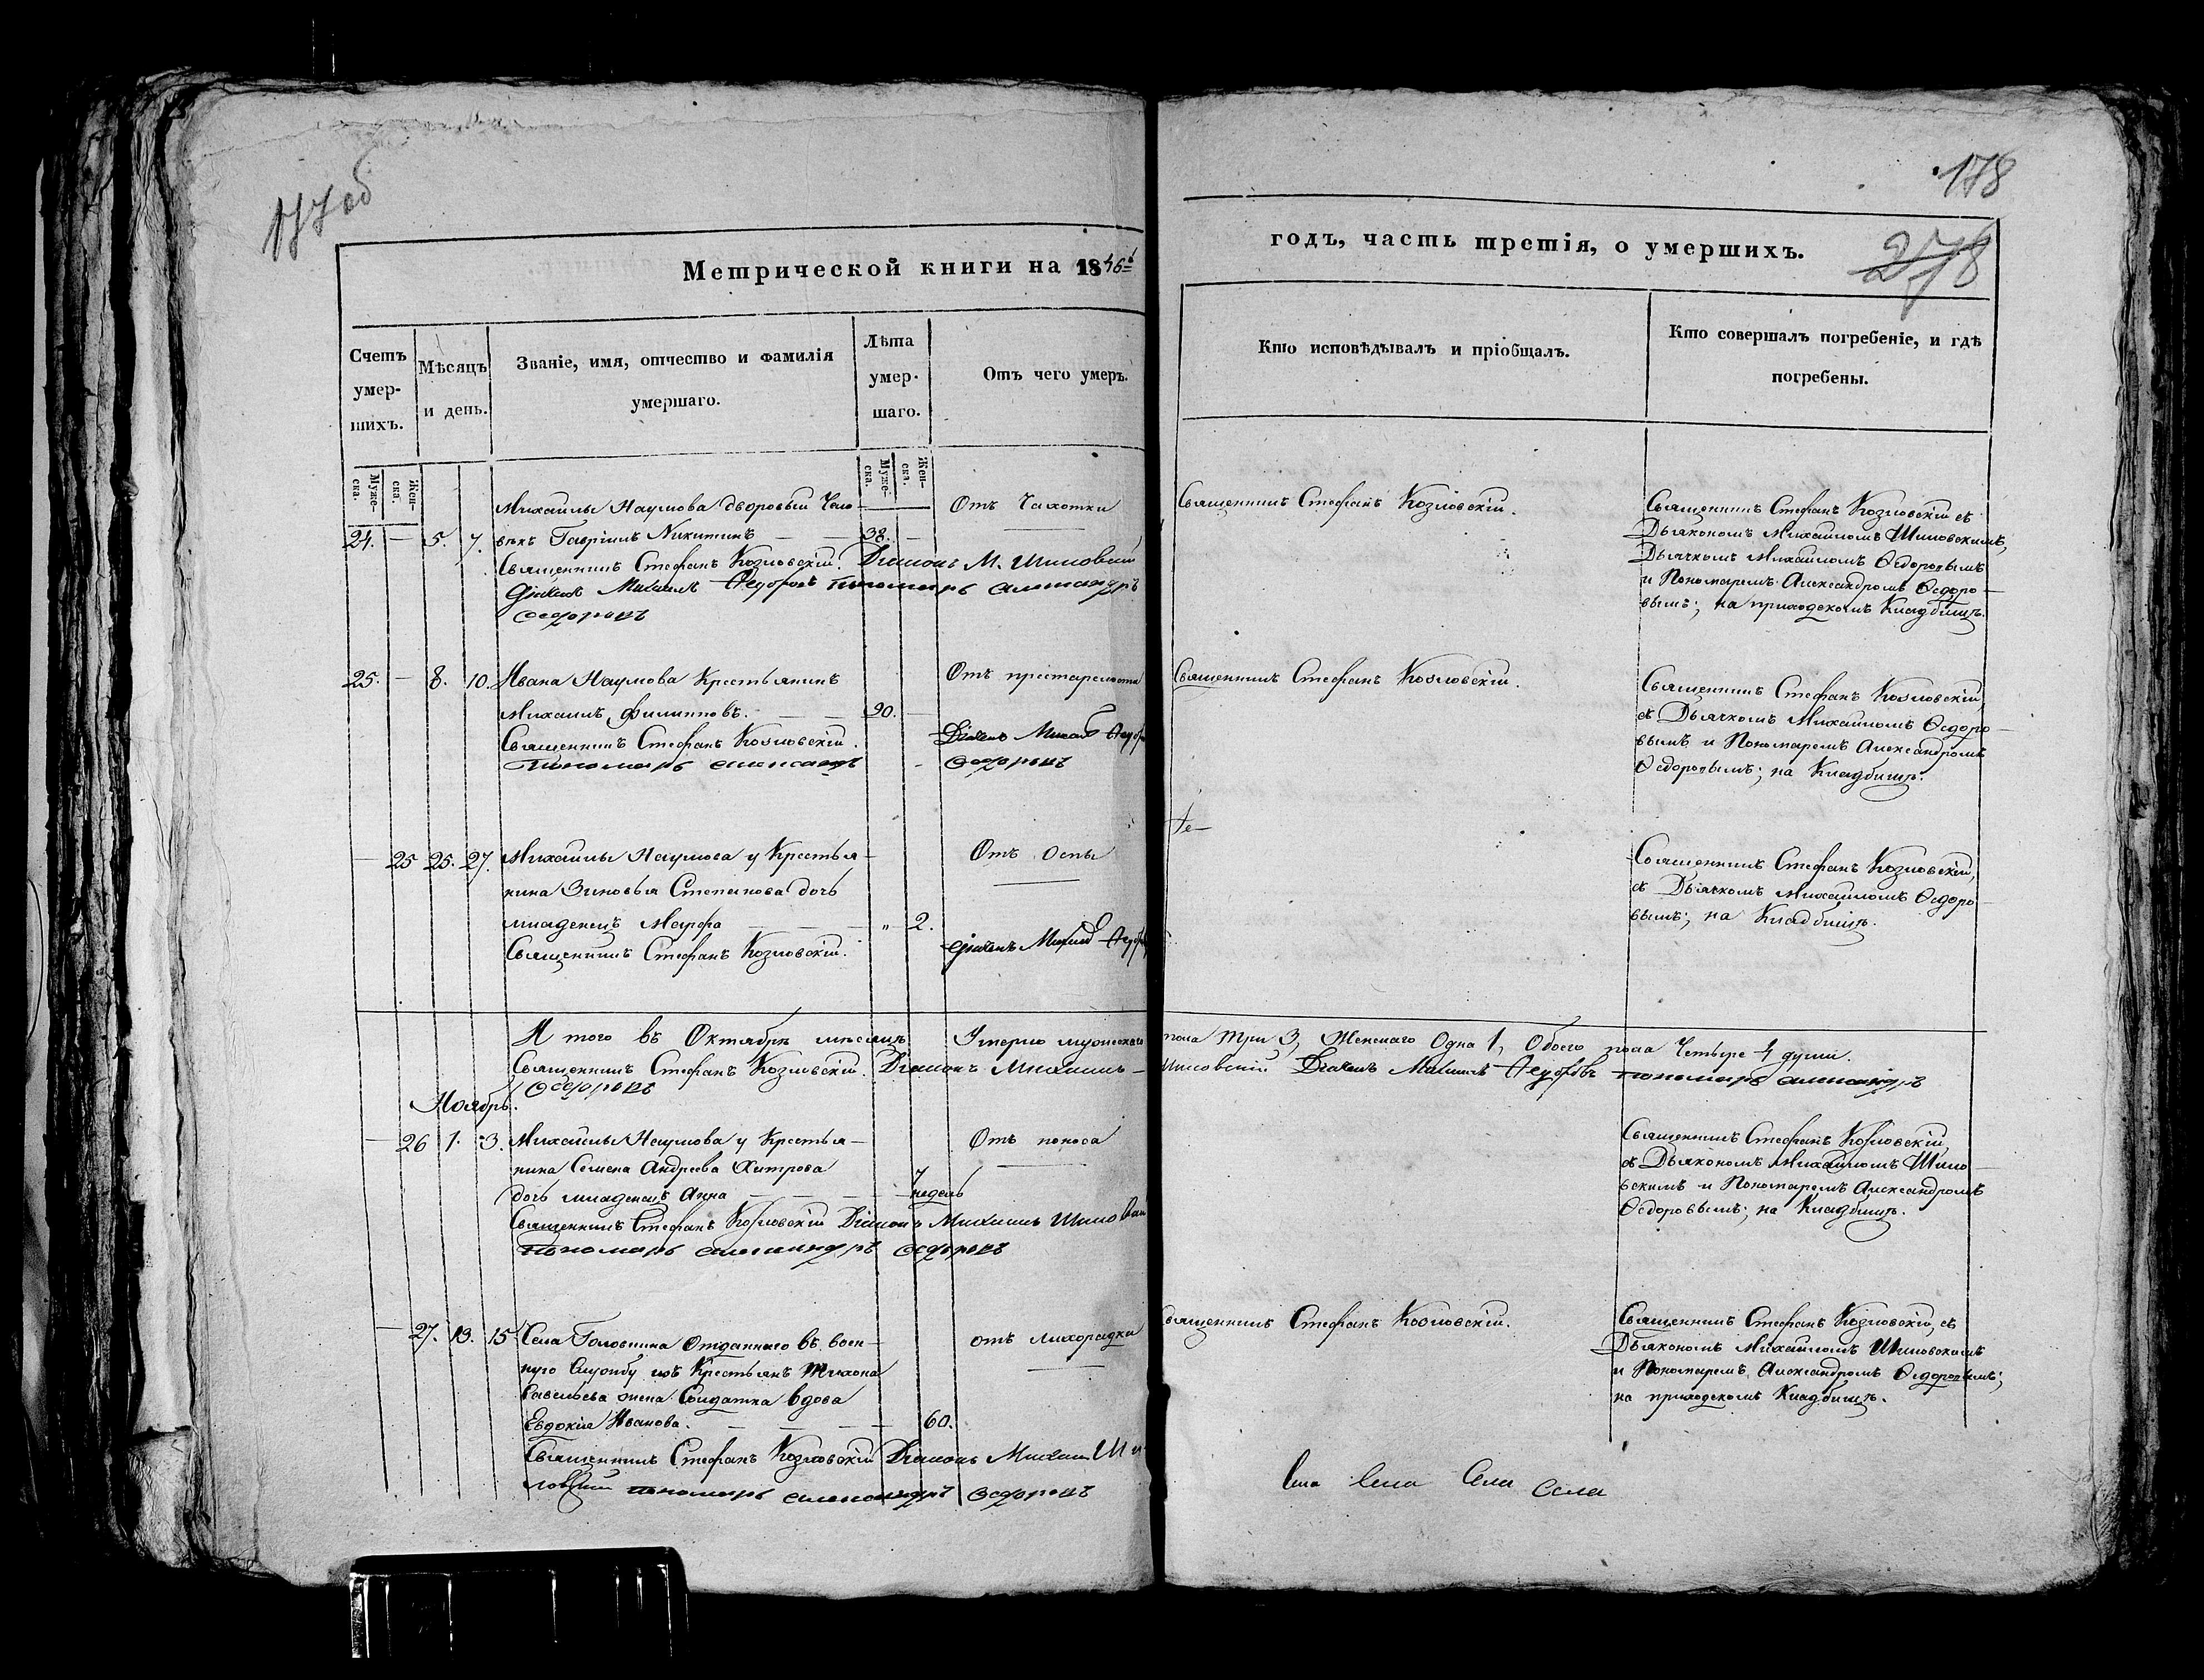 177 об
178
278
Метрической книги на 1846й
годъ, часть третія, о умершихъ.
Счетъ умер-
шихъ.
Мѣсяцъ
и день.
Званіе, имя, отчество и фамилія
умершаго.
Лѣта
умер-
шаго.
Отъ чего умеръ.
Кто исповѣдывалъ и пріобщалъ.
Кто совершалъ погребеніе, и гдѣ
погребены.
Муже-
ска.
Жен-
ска.
Муже-
ска.
Жен-
ска.
Михайлы Наумова дворовый Чело-
24. — 5. 7. вѣкъ Гавріилъ Никитинъ — — 38. —
Отъ Чахотки
Священникъ Стефанъ Козловскій. Діаконъ М. Шиловскій
Дьячекъ Михаилъ Федоровъ пономарь Александръ
Федоровъ
Священникъ Стефанъ Козловскій.
Священникъ Стефанъ Козловскій съ
Дьякономъ Михаиломъ Шиловскимъ,
Дьячкомъ Михаиломъ Ѳедоровымъ
и Пономаремъ Александромъ Ѳедоро-
вымъ; на приходскомъ Кладбищѣ.
25. — 8. 10. Ивана Наумова Крестьянинъ
Михаилъ Филипповъ. — — 90. —
Отъ престарелости
Священникъ Стефанъ Козловскій.
Дьячекъ Михаилъ Федоро
Пономарь Александръ Федоровъ
Священникъ Стефанъ Козловскій.
Священникъ Стефанъ Козловскій,
съ Дьячкомъ Михаиломъ Ѳедоро-
вымъ и Пономаремъ Александромъ
Ѳедоровымъ; на Кладбищѣ.
— 25 25. 27. Михайлы Наумова у Крестья-
нина Зиновья Степанова дочь
младенецъ Марфа — — — " 2.
Отъ Оспы
Священникъ Стефанъ Козловскій.
Дьячекъ Михаилъ Федоро
Священникъ Стефанъ Козловскій,
съ Дьячкомъ Михаиломъ Ѳедоро-
вымъ; на Кладбищѣ.
И того въ Октябрѣ мѣсяцѣ Умерло мужескаго пола Три 3, Женскаго Одна 1, Обоего пола Четыре 4 души.
Священникъ Стефанъ Козловскій. Діаконъ Михаилъ Шиловскій Дьячекъ Михаилъ Федоровъ пономарь Александръ
Федоровъ
Ноябрь.
— 26 1. 3. Михайлы Наумова у Крестья-
нина Семена Андреева Хитрова
дочь младенецъ Анна — — — 7 недель
Отъ поноса
Священникъ Стефанъ Козловскій Діаконъ Михаилъ Шиловскій
пономарь Александръ Федоровъ
Священникъ Стефанъ Козловскій,
съ Дьякономъ Михаиломъ Шило-
вскимъ и Пономаремъ Александромъ
Ѳедоровымъ; на Кладбищѣ.
— 27. 13. 15 Села Головнина Отданнаго въ воен-
ную Службу изъ Крестьянъ Тихона
Савельева жена Солдатка вдова
Евдокія Иванова. — — — 60.
отъ лихорадки
Священникъ Стефанъ Козловскій Діаконъ Михаилъ Ши-
ловскій пономарь Александръ Федоровъ
Священникъ Стефанъ Козловскій.
Священникъ Стефанъ Козловскій, съ
Дьякономъ Михаиломъ Шиловскимъ
и Пономаремъ Александромъ Ѳедоровымъ;
на приходскомъ Кладбищѣ.
Села Села Села Села